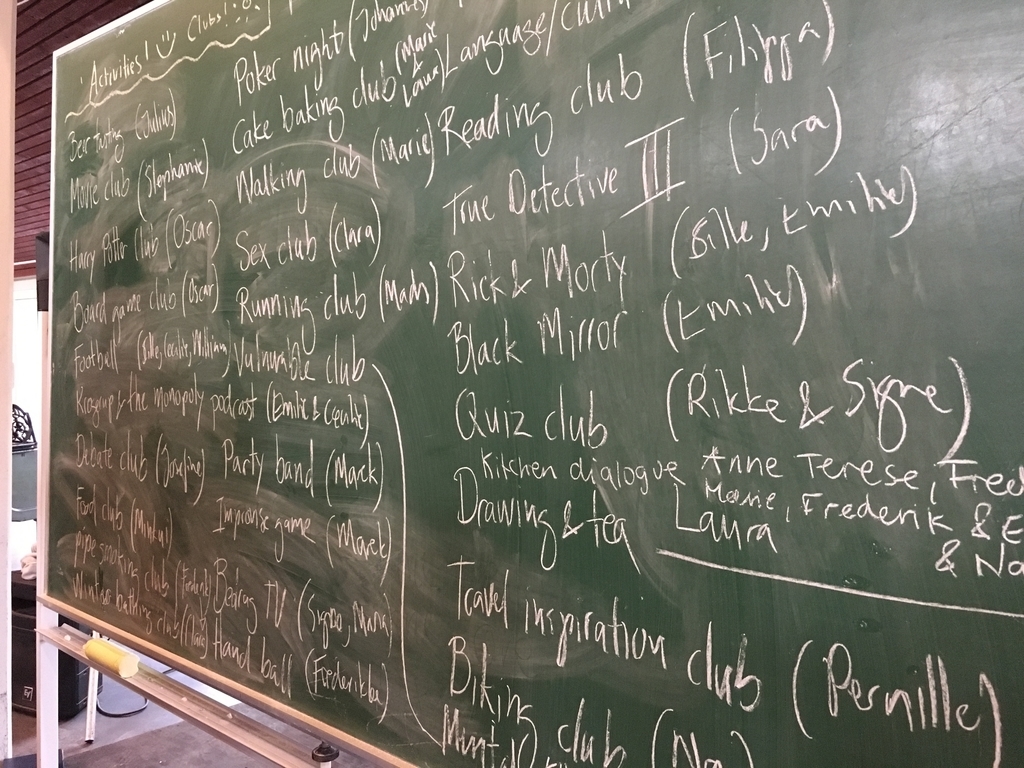 Activities! Clubs!
Beer tasting (Julius)
Movie club (Stephanie)
Harry Potter club (Oscar)
Board game club (Oscar)
Football (Bille, Cecilie,
the monopoly podcast (Emilie & Cecilie)
Debate club (Josefine)
Food club
pipe smoking club
Winter bathing club
Poker night (Johannes
Cake baking club (Marie & Laura)
Walking club (Marie)
Sex club (Clara)
Running club (Mads)
Vulnurable club
Party band (Marek)
Improvise game (Marek)
Bedrag TV (Signe, Maria)
Hand ball (Frederikke)
Language/
Reading club (Filippa)
True Detective III (Sara)
Rick & Morty (Bille, Emilie)
Black Mirror (Emilie)
Quiz club (Rikke & Signe)
Kitchen dialogue Anne Terese,
Frederik &
& Na
Drawing & tea Laura
Travel inspiration club (Pernille)
Biking club (Na